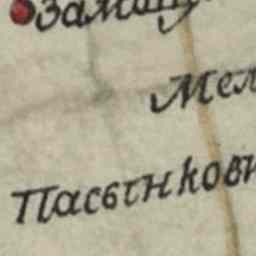 Замощу
Мел
Пасынкови